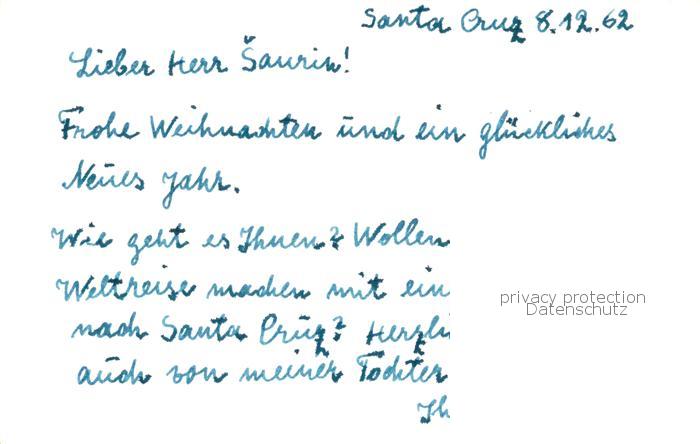 Santa Cruz 8.12.62
Lieber Herr Šaurin!
Frohe Weihnachten und ein glückliches
Neues Jahr.
Wie geht es Ihnen? Wollen
Weltreise machen mit ein
nach Santa Cruz? Herzli
auch von meiner Tochter
Ih
privacy protection
Datenschutz